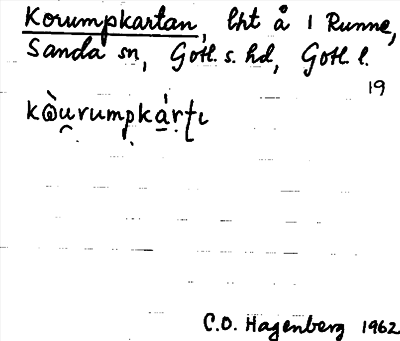 Korumpkartan, lht å 1 Runne,
Sanda sn, Gotl. s. hd, Gotl. l.
19
kòu̯rumpkárti
C.O. Hagenberg 1962